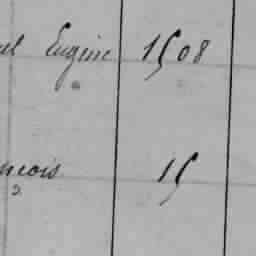 el Eugène 1508
ncois 15